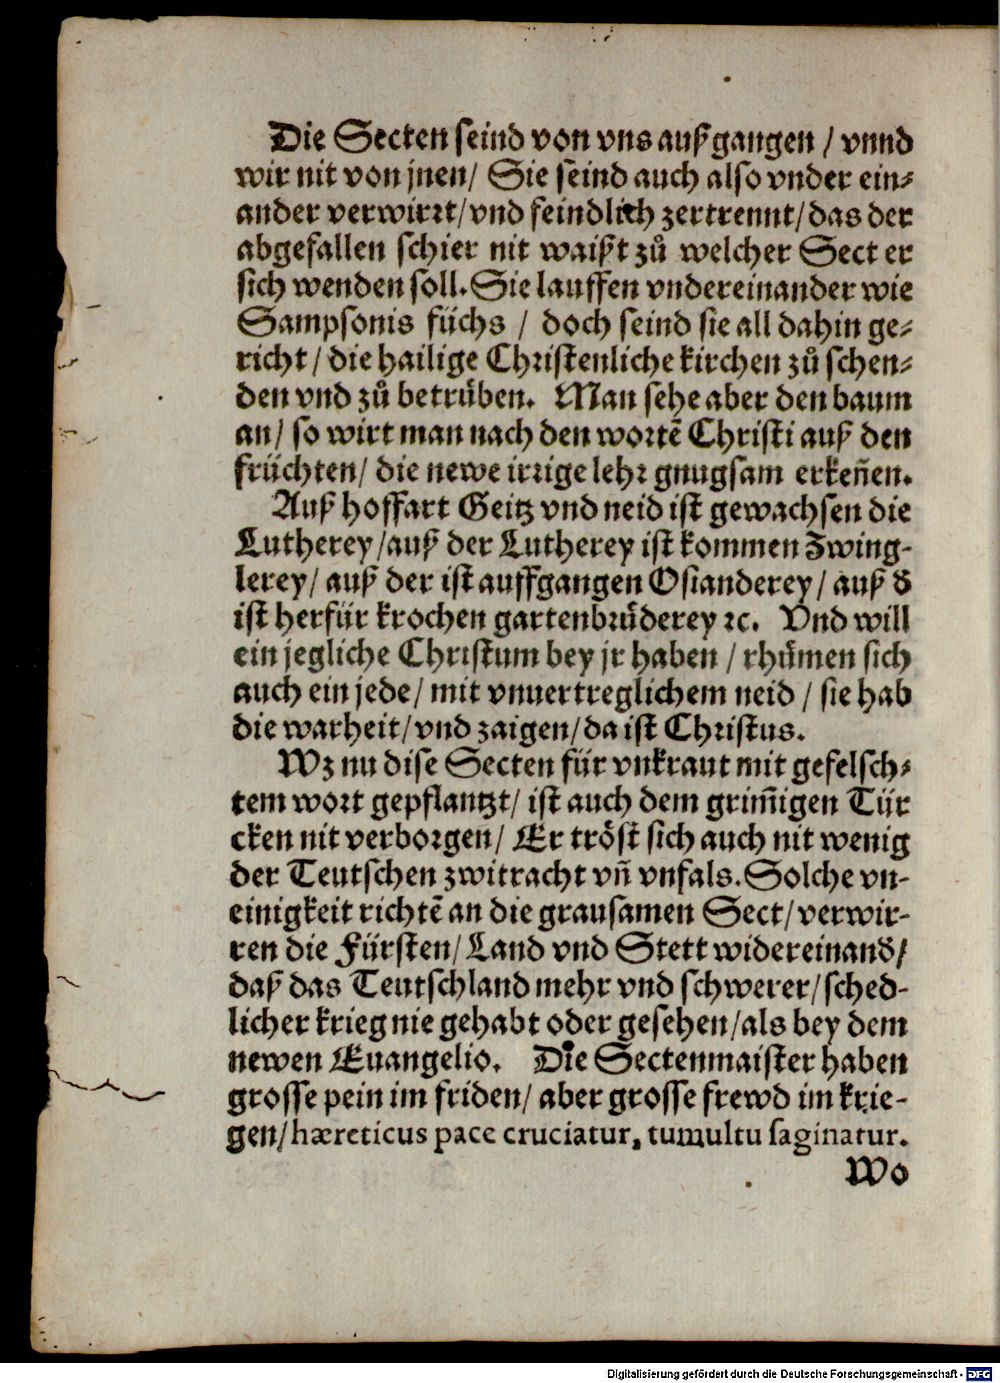 Die Secten seind von vns außgangen / vnnd
wir nit von jnen / Sie seind auch also vnder ein⸗
ander verwirꝛt / vnd feindlich zertrennt / das der
abgefallen schier nit waißt zů welcher Sect er
sich wenden soll. Sie lauffen vndereinander wie
Sampsonis füchs / doch seind sie all dahin ge⸗
richt / die hailige Christenliche kirchen zů schen⸗
den vnd zů betruͤben. Man sehe aber den baum
an / so wirt man nach den woꝛtē Christi auß den
früchten / die newe irꝛige lehꝛ gnugsam erkeñen.
Auß hoffart Geitz vnd neid ist gewachsen die
Lutherey / auß der Lutherey ist kommen Zwing-
lerey / auß der ist auffgangen Osianderey / auß d̕
ist herfür krochen gartenbꝛuͤderey ꝛc. Vnd will
ein jegliche Christum bey jr haben / rhuͤmen sich
auch ein jede / mit vnuertreglichem neid / sie hab
die warheit / vnd zaigen / da ist Chꝛistus.
Wz nu dise Secten für vnkraut mit gefelsch⸗
tem woꝛt gepflantzt / ist auch dem grim̃igen Tür
cken nit verboꝛgen / Er troͤst sich auch nit wenig
der Teutschen zwitracht vñ vnfals. Solche vn-
einigkeit richtē an die grausamen Sect / verwir-
ren die Fürsten / Land vnd Stett widereinand̕ /
daß das Teutschland mehr vnd schwerer / sched-
licher krieg nie gehabt oder gesehen / als bey dem
newen Euangelio. Die Sectenmaister haben
grosse pein im friden / aber grosse frewd im krie-
gen / hæreticus pace cruciatur, tumultu saginatur.
Wo
Digitalisierung gefördert durch die Deutsche Forschungsgemeinschaft - DFG